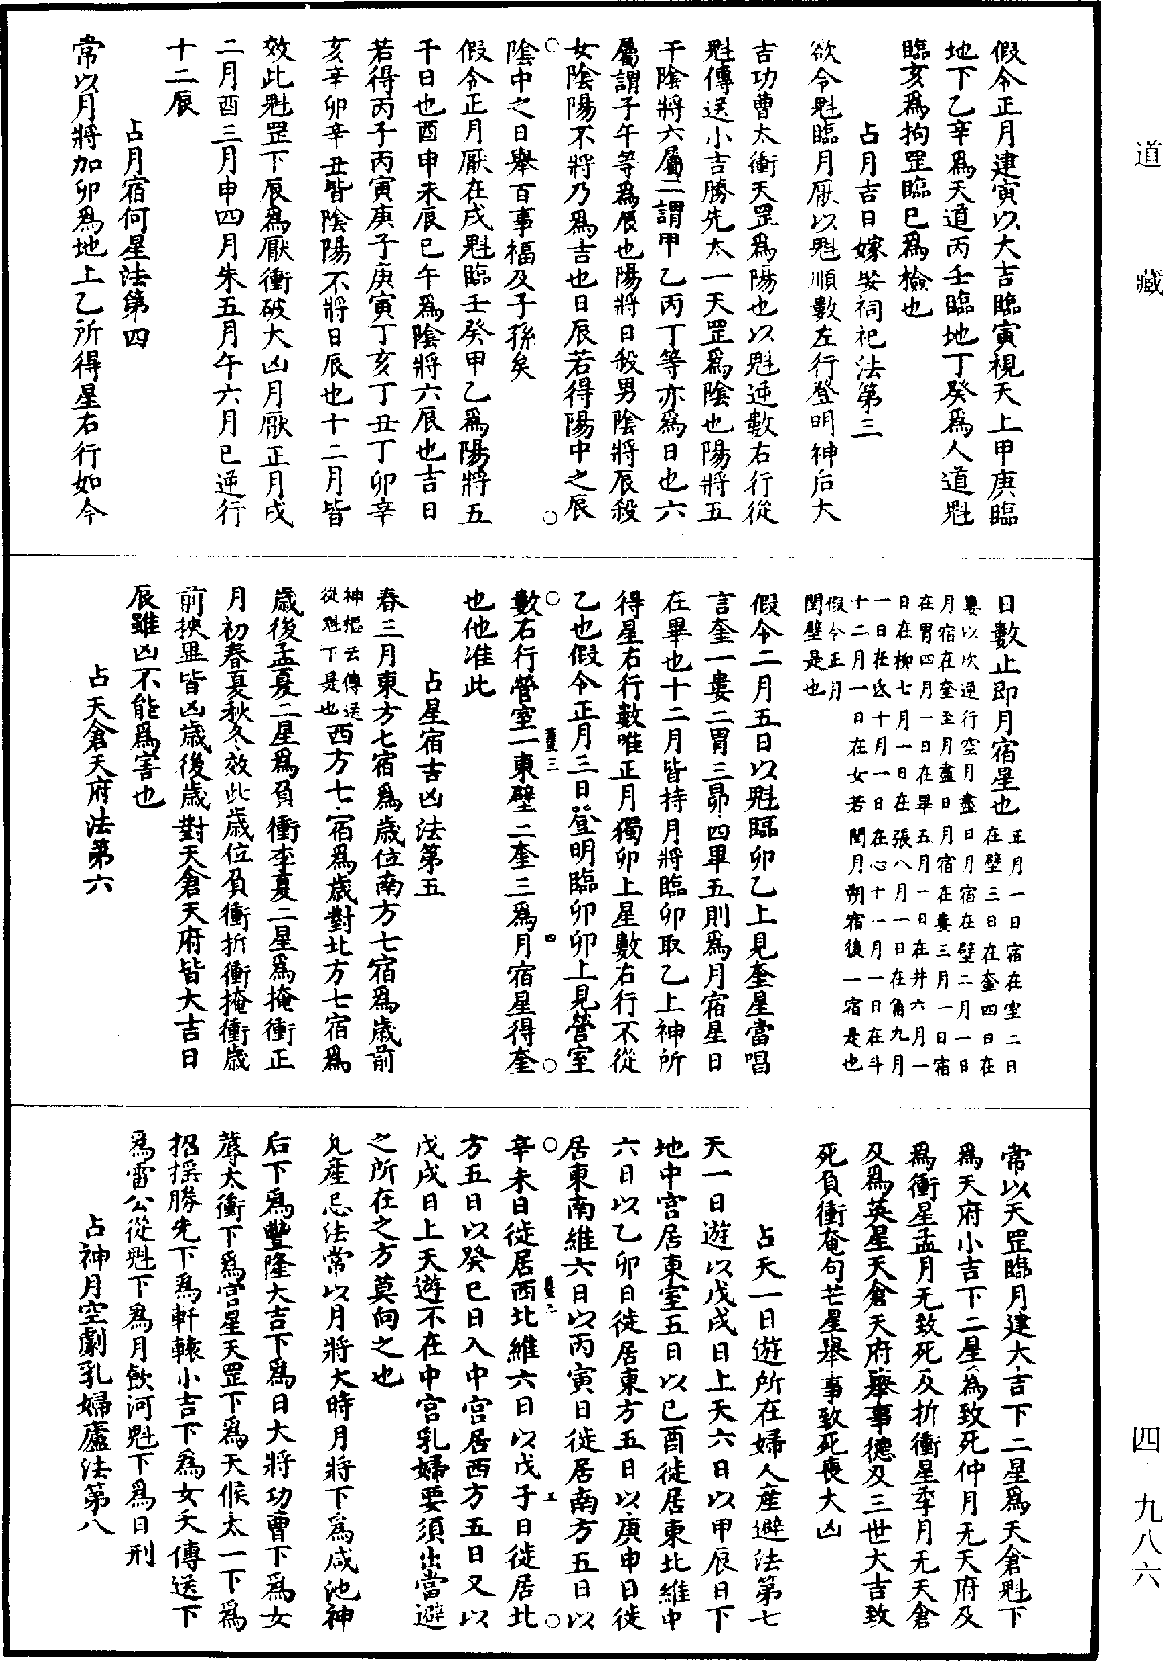 道藏
四 九八六
假令正月建寅以大吉臨寅視天上甲庚臨
地下乙辛為天道丙壬臨地丁癸為人道魁
臨亥為拘罡臨巳為檢也
占月吉日嫁娶祠祀法第三
欲令魁臨月厭以魁順數左行登明神后大
吉功曹太衝天罡為陽也以魁逆數右行從
魁傳送小吉勝先太一天罡為陰也陽將五
干陰將六屬二謂甲乙丙丁等亦為日也六
屬謂子午等為辰也陽將日殺男陰將辰殺
女陰陽不將乃為吉也日辰若得陽中之辰
陰中之日舉百事福及子孫矣
假令正月厭在戌魁臨壬癸甲乙為陽將五
干日也酉申未辰巳午為陰將六辰也吉日
若得丙子丙寅庚子庚寅丁亥丁丑丁卯辛
亥辛卯辛丑皆陰陽不將日辰也十二月皆
效此魁罡下辰為厭衝破大凶月厭正月戌
二月酉三月申四月未五月午六月巳逆行
十二辰
占月宿何星法第四
常以月將加卯為地上乙所得星右行如今
日數止即月宿星也正月一日宿在室二日
在壁三日在奎四日在
婁以次逆行空月盡日月宿在壁二月一日
月宿在奎至月盡日月宿在婁三月一日宿
在胃四月一日在畢五月一日在井六月一
日在柳七月一日在張八月一日在角九月
一日在氐十月一日在心十一月一日在斗
十二月一日在女若閏月朔宿後一宿是也
假令正月
閏壁是也
假令二月五日以魁臨卯乙上見奎星當唱
言奎一婁二胃三昴四畢五則為月宿星日
在畢也十二月皆持月將臨卯取乙上神所
得星右行數唯正月獨卯上星數右行不從
乙也假令正月三日登明臨卯卯上見營室
數右行營室一東壁二奎三為月宿星得奎
也他准此
占星宿吉凶法第五
春三月東方七宿為歲位南方七宿為歲前
神樞云傳送
從魁下是也西方七宿為歲對北方七宿為
歲後孟夏二星為負衝季夏二星為掩衝正
月初春夏秋冬效此歲位負衝折衝掩衝歲
前挾畢皆凶歲後歲對天倉天府皆大吉日
辰雖凶不能為害也
占天倉天府法第六
常以天罡臨月建大吉下二星為天倉魁下
為天府小吉下二星為致死仲月无天府及
為衝星孟月无致死及折衝星季月无天倉
及為英星天倉天府舉事德及三世大吉致
死負衝奄句芒星舉事致死喪大凶
占天一日遊所在婦人產避法第七
天一日遊以戊戌日上天六日以甲辰日下
地中宮居東室五日以己酉徙居東北維中
六日以乙卯日徙居東方五日以庚申日徙
居東南維六日以丙寅日徙居南方五日以
辛未日徙居西北維六日以戊子日徙居北
方五日以癸巳日入中宮居西方五日又以
戊戌日上天遊不在中宮乳婦要須出當避
之所在之方莫向之也
凡產忌法常以月將大時月將下為咸池神
后下為豐隆大吉下為日大將功曹下為女
辱太衝下為營星天罡下為天候太一下為
招搖勝先下為軒轅小吉下為女夭傳送下
為雷公從魁下為月飲河魁下為日刑
占神月空劇乳婦廬法第八